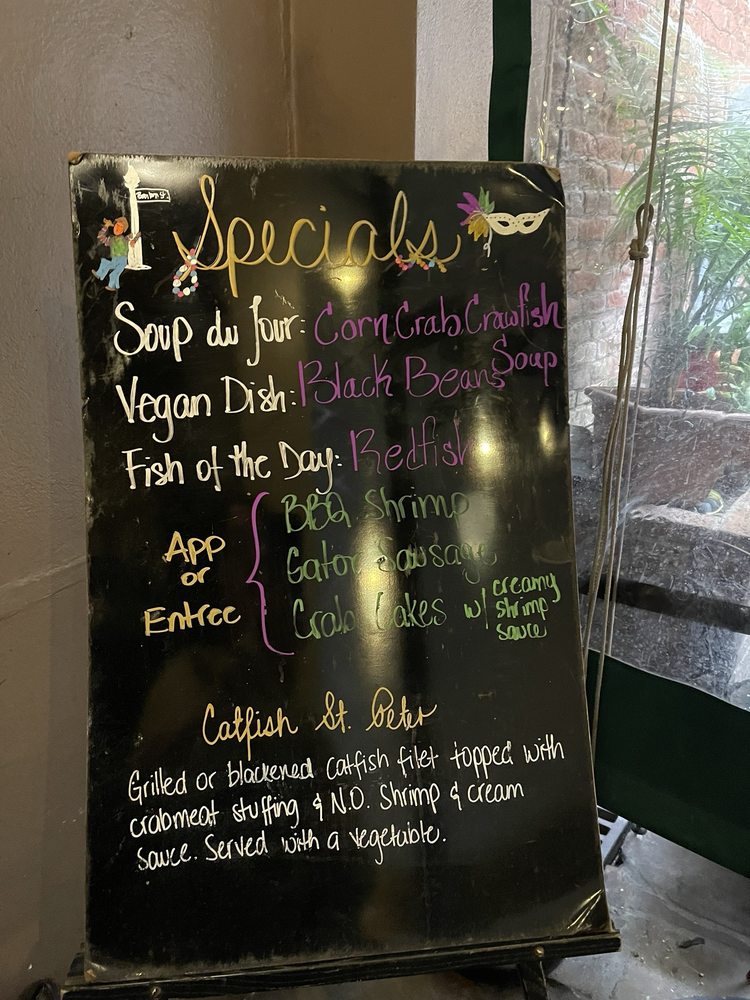 Bourbon St.
Specials
Soup du Jour: Corn Crab Crawfish
Soup
Vegan Dish: Black Beans
Fish of the Day: Redfish
App
or
Entree
BBQ Shrimp
Gator Sausage
Crab Cakes w/ creamy
shrimp
sauce
Catfish St. Peter
Grilled or blackened catfish filet topped with
crabmeat stuffing & N.O. Shrimp & cream
Sauce. Served with a vegetable.